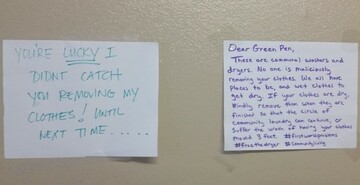 YOU'RE LUCKY I
DIDNT CATCH
YOU REMOVING MY
CLOTHES! UNTIL
NEXT TIME.....
Dear Green Pen,
These are communal washers and
dryers. No one is maliciously
removing your clothes. We all have
places to be, and wet clothes to
get dry. If your clothes are dry,
kindly remove them when they are
finished so that the circle of
community laundry can continue, or
suffer the wrath of having your clothes
moved 3 feet. #firstworldproblems
#freethedryer #communityliving